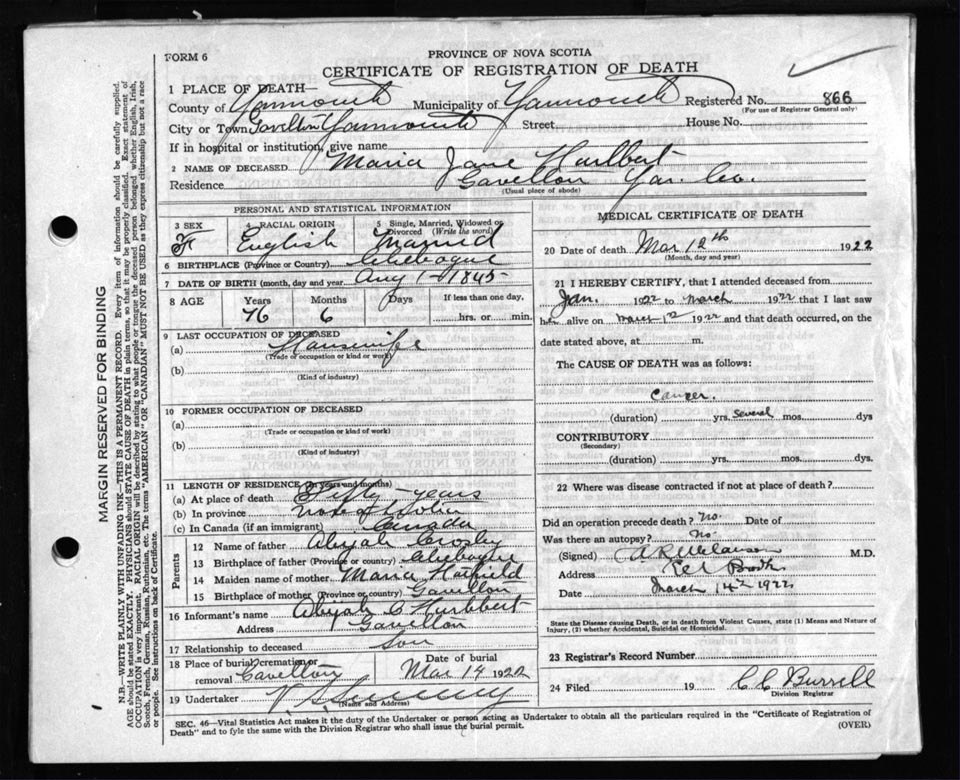 FORM 6
PROVINCE OF NOVA SCOTIA
CERTIFICATE OF REGISTRATION OF DEATH
1 PLACE OF DEATH—
County of Yarmouth Municipality of Yarmouth Registered No. 866
(For use of Registrar General only)
City or Town Gavelton Yarmouth Street House No.
If in hospital or institution, give name
2 NAME OF DECEASED Maria Jane Hurlbert
Residence Gavelton Yar. Co.
(Usual place of abode)
PERSONAL AND STATISTICAL INFORMATION
3 SEX 4 RACIAL ORIGIN 5 Single, Married, Widowed or Divorced (Write the word)
F English Married
6 BIRTHPLACE (Province or Country) Chebogue
7 DATE OF BIRTH (month, day and year) Aug 1- 1845-
8 AGE Years Months Days If less than one day,
76 6 hrs. or min.
9 LAST OCCUPATION OF DECEASED
(a) Housewife
(Trade or occupation or kind or work)
(b)
(Kind of industry)
10 FORMER OCCUPATION OF DECEASED
(a)
(Trade or occupation or kind of work)
(b)
(Kind of industry)
11 LENGTH OF RESIDENCE (in years and months)
(a) At place of death Fifty-years
(b) In province Nova Scotia
(c) In Canada (if an immigrant) Canada
Parents
12 Name of father Abijah Crosby
13 Birthplace of father (Province or country) Chebogue
14 Maiden name of mother Maria Hatfield
15 Birthplace of mother (Province or country) Gavelton
16 Informant's name Abijah C Hurlbert
Address Gavelton
17 Relationship to deceased Son
18 Place of burial, cremation or removal Gavelton Date of burial Mar 14 1922
19 Undertaker
(Name and Address)
MEDICAL CERTIFICATE OF DEATH
20 Date of death Mar 12th 1922
(Month, day and year)
21 I HEREBY CERTIFY, that I attended deceased from
Jan. 1922 to march 1922 that I last saw
her alive on march 12 1922 and that death occurred, on the
date stated above, at m.
The CAUSE OF DEATH was as follows:
Cancer.
(duration) yrs. several mos. dys
CONTRIBUTORY
(Secondary)
(duration) yrs. mos. dys.
22 Where was disease contracted if not at place of death?
Did an operation precede death? No. Date of
Was there an autopsy? No.
(Signed) M.D.
Address
Date March 14th 1922
State the Disease causing Death, or in death from Violent Causes, state (1) Means and Nature of
Injury, (2) whether Accidental, Suicidal or Homicidal.
23 Registrar's Record Number
24 Filed 19 C C Burrell
Division Registrar
SEC. 46—Vital Statistics Act makes it the duty of the Undertaker or person acting as Undertaker to obtain all the particulars required in the "Certificate of Registration of
Death" and to fyle the same with the Division Registrar who shall issue the burial permit.
(OVER)
MARGIN RESERVED FOR BINDING
N.B.—WRITE PLAINLY WITH UNFADING INK—THIS IS A PERMANENT RECORD. Every item of information should be carefully supplied.
AGE should be stated EXACTLY. PHYSICIANS should STATE CAUSE OF DEATH in plain terms, so that it may be properly classified. Exact statement of
OCCUPATION is very important. RACIAL ORIGIN will be described by stating to what people or tongue the deceased person belonged whether English, Irish,
Scotch, French, German, Russian, Ruthenian, etc. The terms "AMERICAN" OR "CANADIAN" MUST NOT BE USED as they express citizenship but not a race
or people. See instructions on back of Certificate.